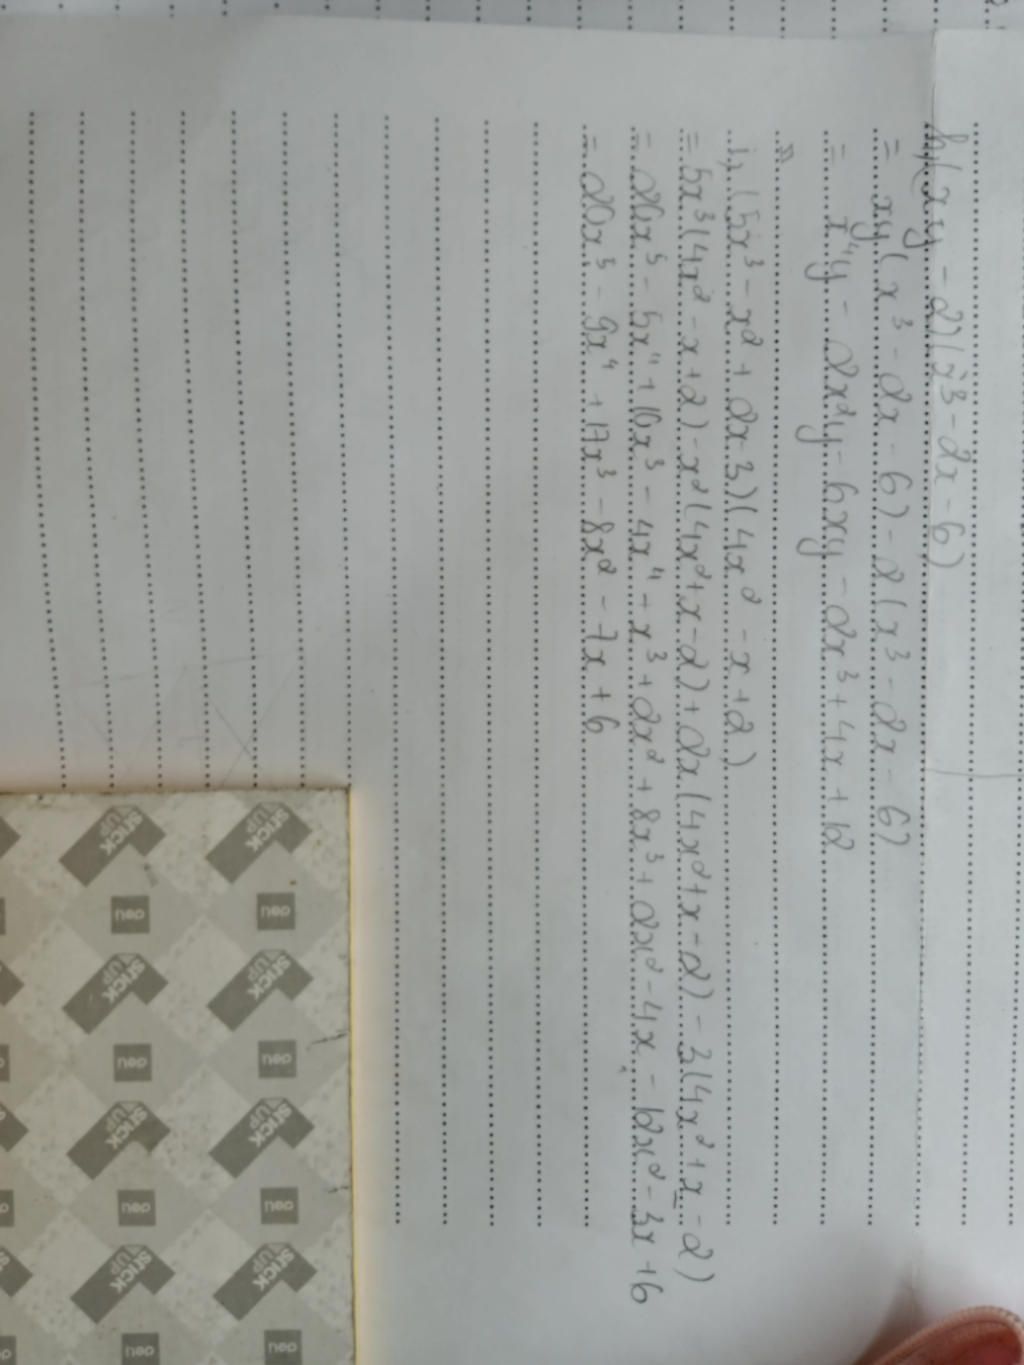 h, (xy - 2)(x³ - 2x - 6)
= xy(x³ - 2x - 6) - 2(x³ - 2x - 6)
= x⁴y - 2x²y - 6xy - 2x³ + 4x + 12
i, (5x³ - x² + 2x - 3)(4x² - x + 2)
= 5x³(4x² - x + 2) - x²(4x² + x - 2) + 2x(4x² + x - 2) - 3(4x² + x - 2)
= 20x⁵ - 5x⁴ + 10x³ - 4x⁴ + x³ + 2x² + 8x³ + 2x² - 4x - 12x² - 3x + 6
= 20x⁵ - 9x⁴ + 17x³ - 8x² - 7x + 6
STICK UP deli STICK UP deli STICK UP deli STICK UP deli
STICK UP deli STICK UP deli STICK UP deli STICK UP deli